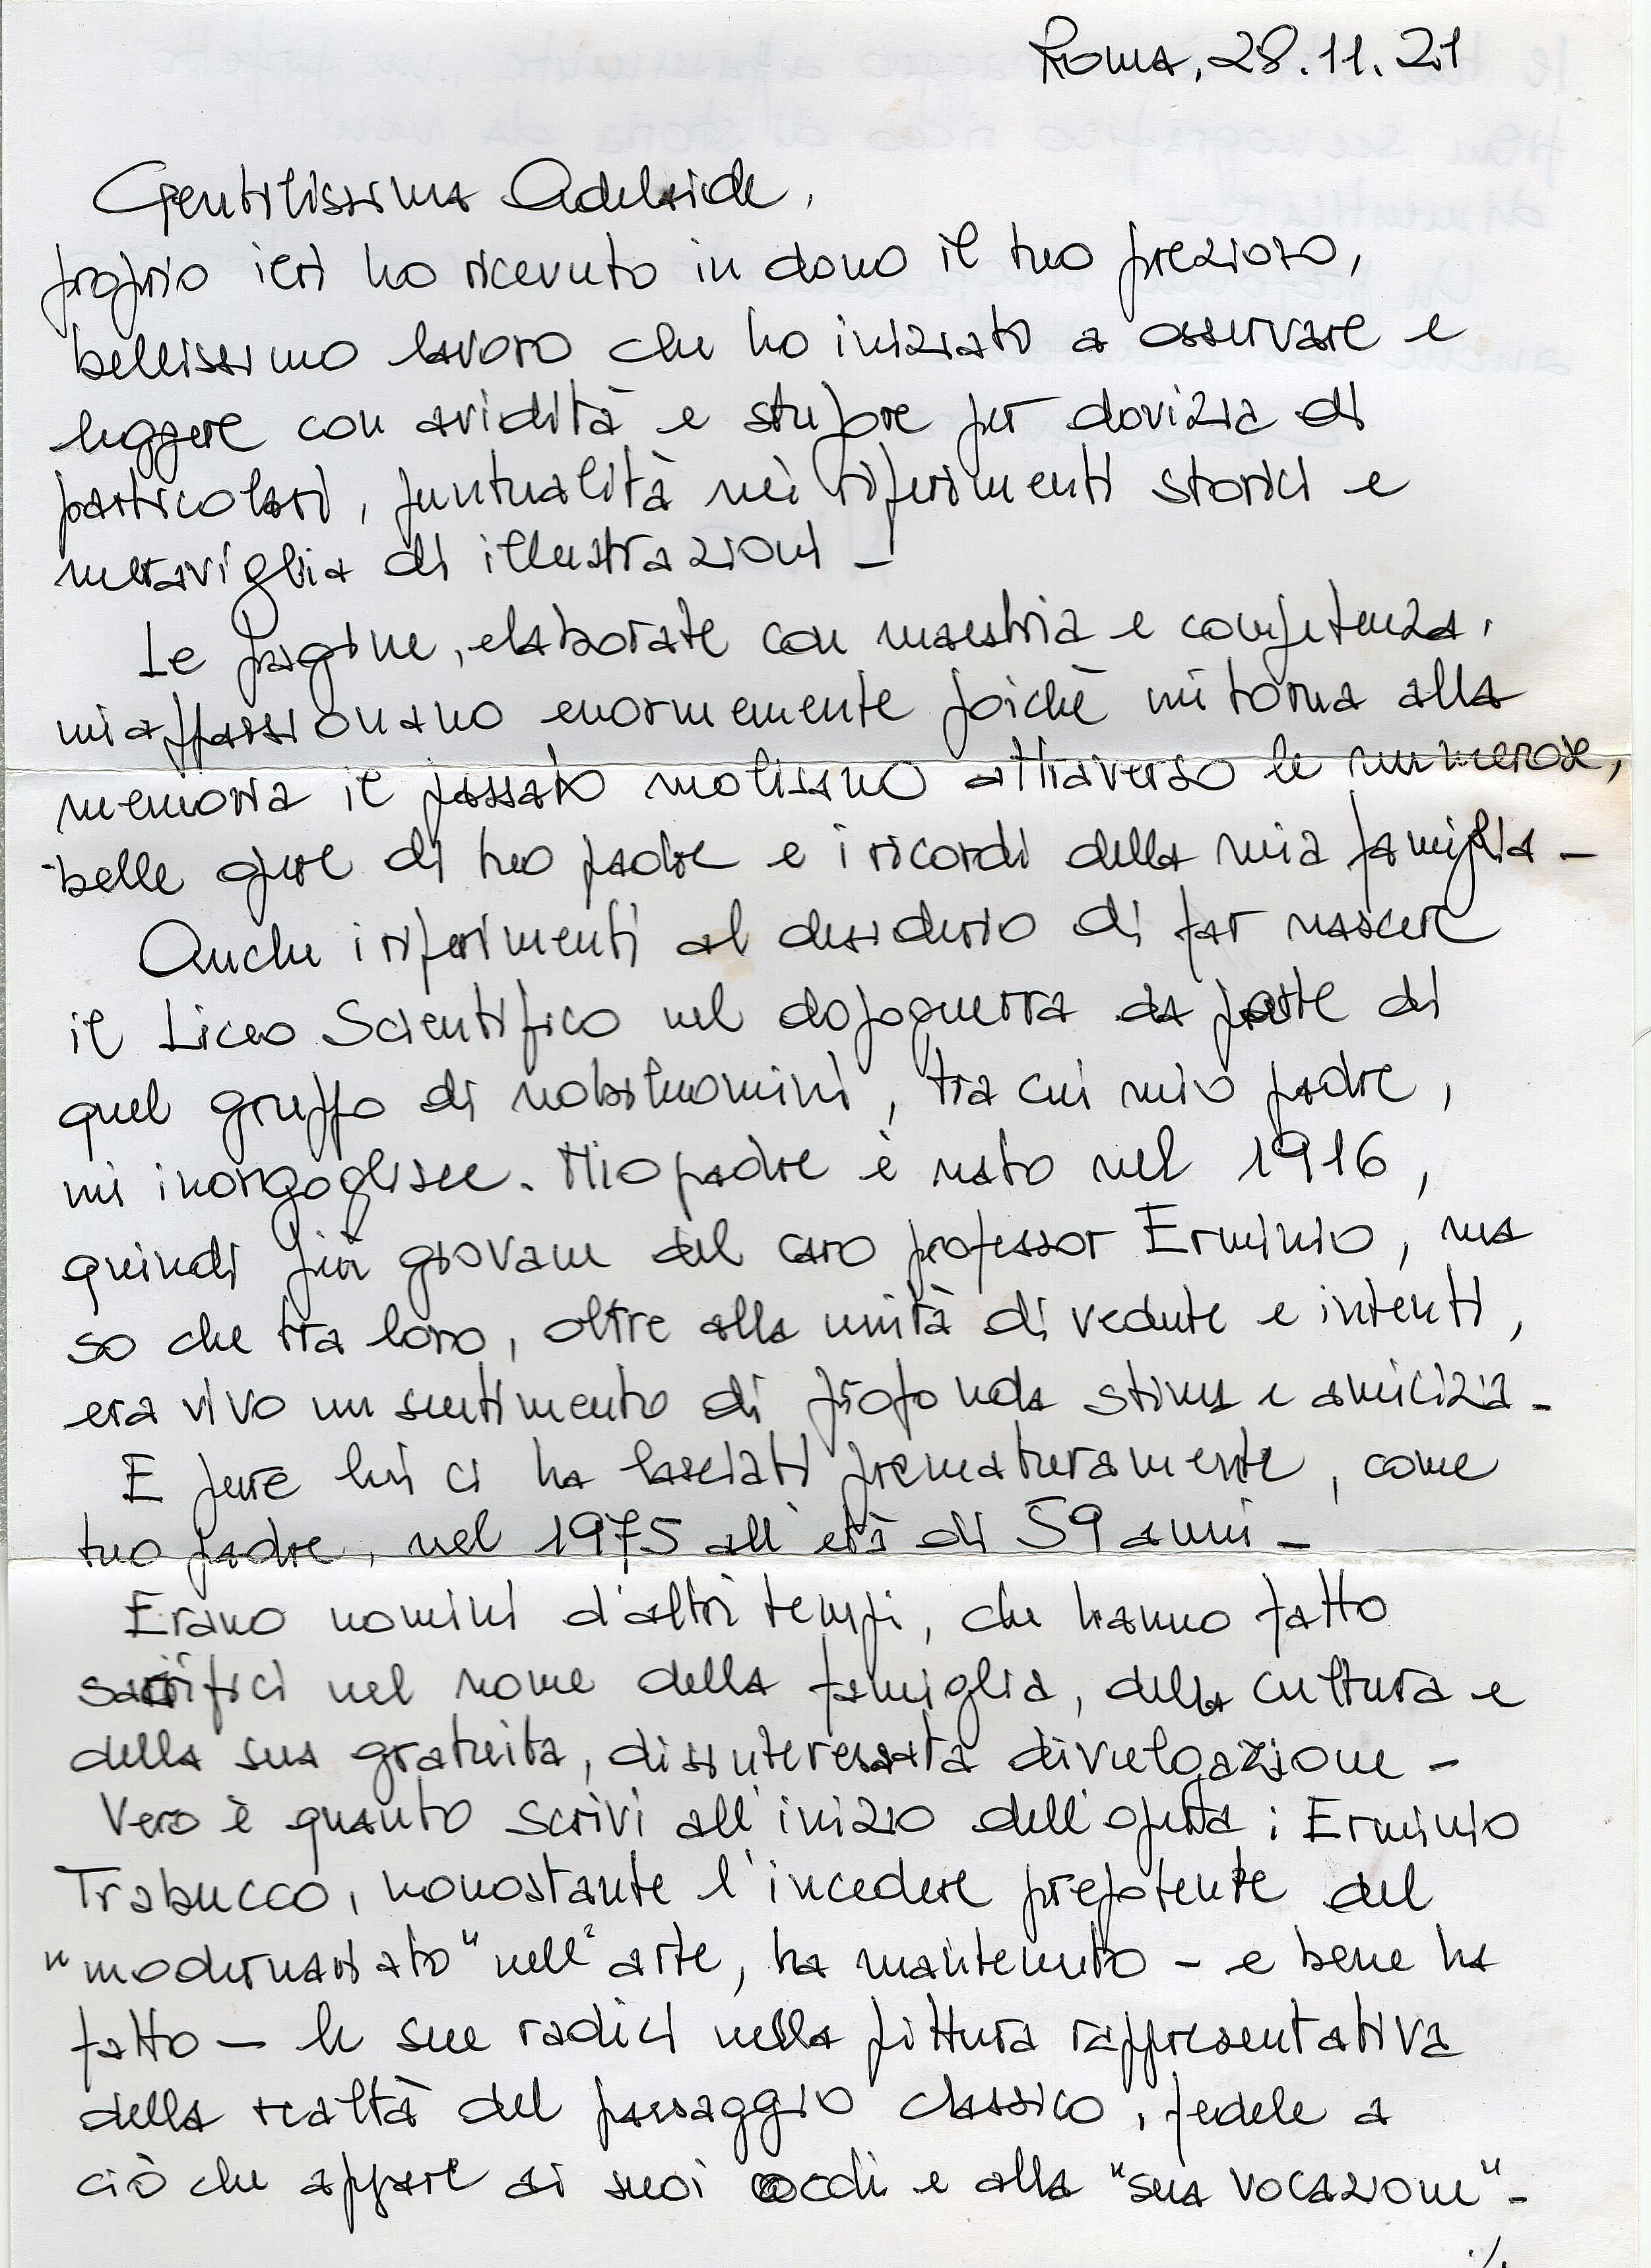 Roma, 28.11.21
Gentilissima Adelaide,
proprio ieri ho ricevuto in dono il tuo prezioso,
bellissimo lavoro che ho iniziato a osservare e
leggere con avidità e stupore per dovizia di
particolari, puntualità nei riferimenti storici e
meraviglia di illustrazioni –
Le pagine, elaborate con maestria e competenza,
mi appassionano enormemente poichè mi torna alla
memoria il passato molisano attraverso le numerose,
belle opere di tuo padre e i ricordi della mia famiglia –
Anche i riferimenti al desiderio di far nascere
il Liceo Scientifico nel dopoguerra da parte di
quel gruppo di nobiluomini, tra cui mio padre,
mi inorgoglisce. Mio padre è nato nel 1916,
quindi più giovane del caro professor Erminio, ma
so che tra loro, oltre alla unità di vedute e intenti,
era vivo un sentimento di profonda stima e amicizia –
E pure lui ci ha lasciati prematuramente, come
tuo padre, nel 1975 all'età di 59 anni –
Erano uomini d'altri tempi, che hanno fatto
sacrifici nel nome della famiglia, della cultura e
della sua gratuita, disinteressata divulgazione –
Vero è quanto scrivi all'inizio dell'opera: Erminio
Trabucco, nonostante l'incedere prepotente del
"modernariato" nell'arte, ha mantenuto – e bene ha
fatto – le sue radici nella pittura rappresentativa
della realtà del paesaggio classico, fedele a
ciò che appare ai suoi occhi e alla "sua vocazione" –
./.